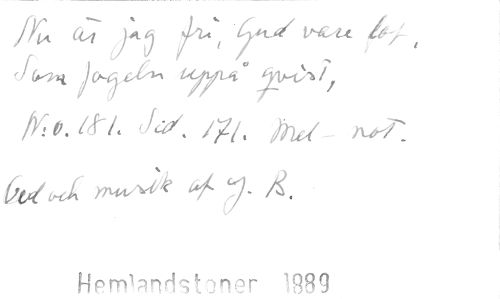 Nu är jag fri, Gud vare lof,
Som fogeln uppå qvist,
N:o. 181. Sid. 171. Mel- not.
Ord och musik af J. B.
Hemlandstoner 1889